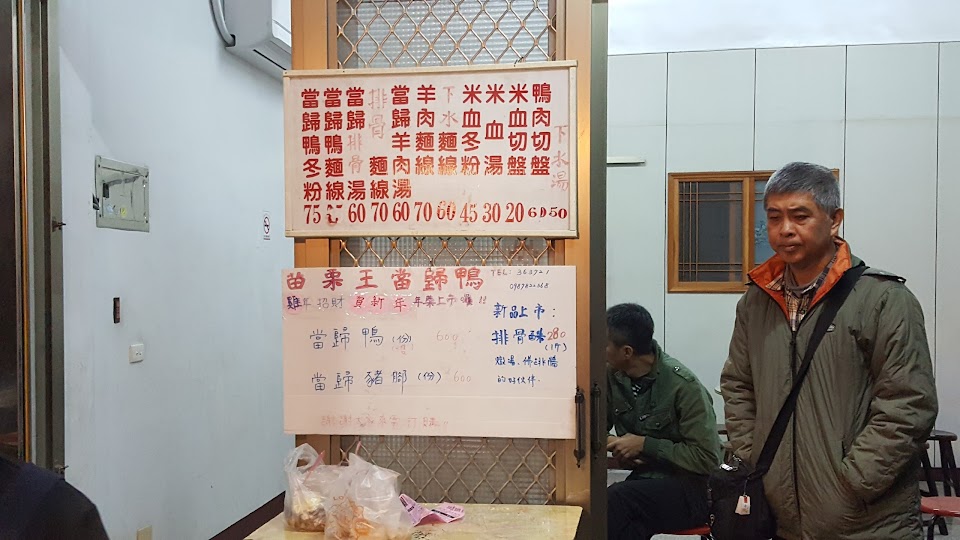 當歸鴨冬粉 75
當歸鴨麵線
當歸排骨湯 60
排骨麵線 70
當歸羊肉湯 60
羊肉麵線 70
下水麵線 60
米血冬粉 45
米血湯 30
米血切盤 20
鴨肉切盤 60
下水湯 50
苗栗王當歸鴨
TEL:
雞年招財 賀新年 年菜上市囉!!
當歸鴨(份) 600
當歸豬腳(份) 600
新品上市:
排骨酥 280
(1斤)
的好伙伴.